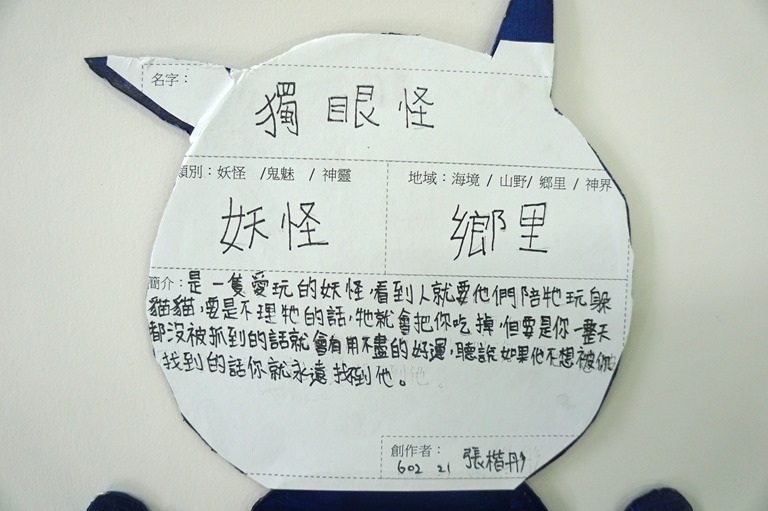 名字：
獨眼怪
類別：妖怪 /鬼魅 / 神靈
妖怪
地域：海境 / 山野/ 鄉里 / 神界
鄉里
簡介：是一隻愛玩的妖怪，看到人就要他們陪牠玩躲
貓貓，要是不理牠的話，牠就會把你吃掉，但要是你一整天
都沒被抓到的話就會有用不盡的好運，聽說如果他不想被你
找到的話你就永遠找到他。
創作者：
602 21 張楷彤